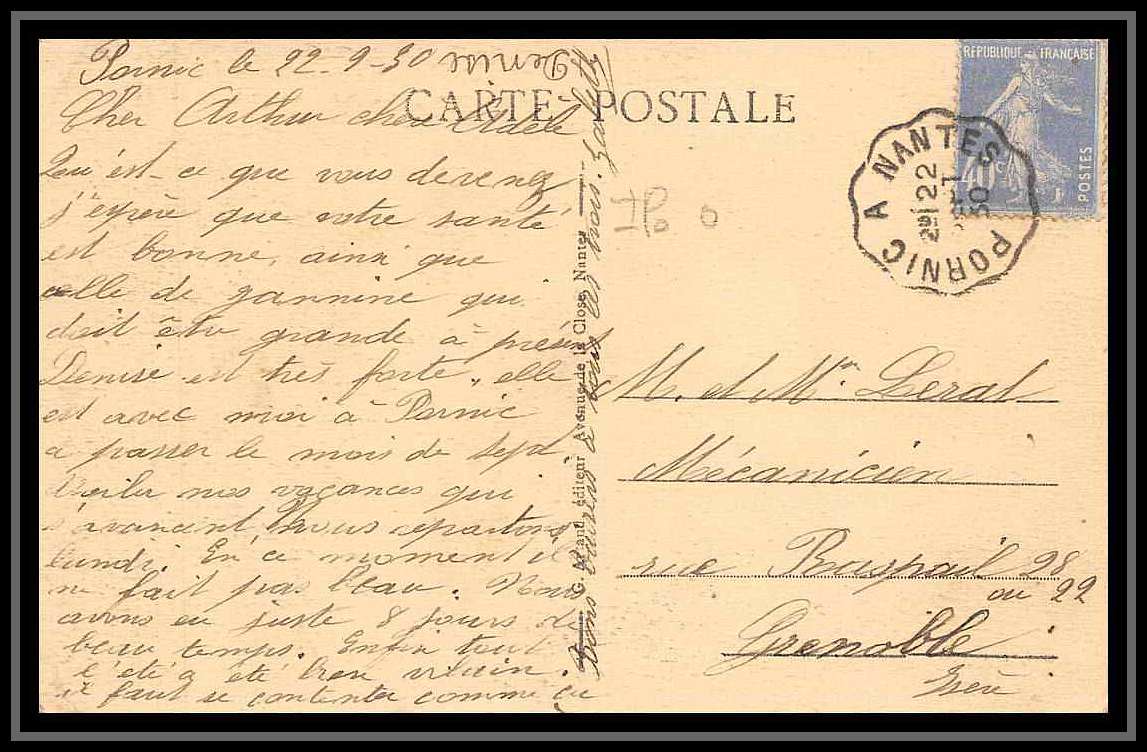 Pornic le 22-9-30
Cher Arthur cher Adèle
Qu'est-ce que vous devenez
j'espère que votre santé
est bonne, ainsi que
celle de Jannine qui
doit être grande à présent
Denise est très forte, elle
est avec moi à Pornic
a passer le mois de sept.
Voila nos vacances qui
s'avancent Nous repartons
lundi. En ce moment il
ne fait pas beau. Nous
avons eu juste 8 jours de
beau temps. Enfin tout
l'été a été bien vilain
il faut se contenter comme ça
Bons baisers a tous les trois.
Denise
CARTE POSTALE
G. éditeur Avenue de la Close, Nantes
REPUBLIQUE FRANÇAISE
POSTES
40
PORNIC A NANTES
22
30
M. et Mme Lerat
Mécanicien
rue Raspail 28
ou 22
Grenoble
Isère